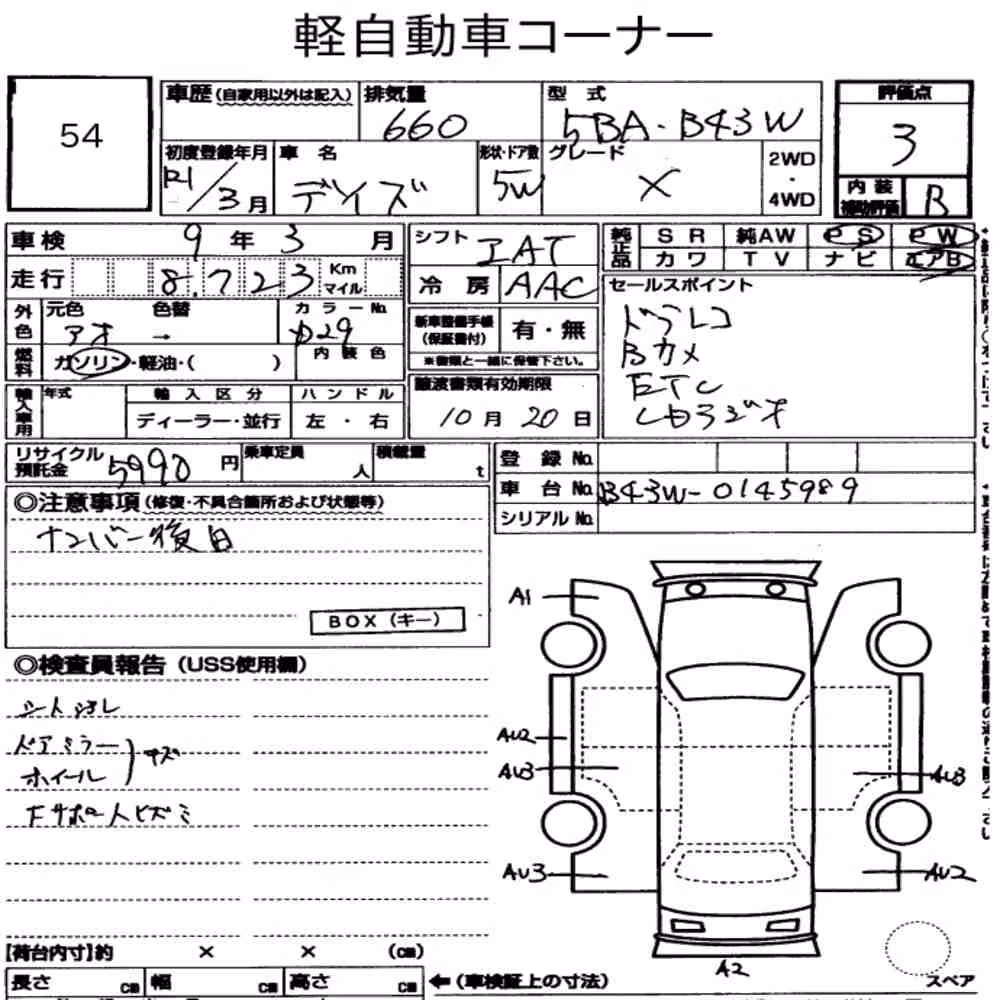 軽自動車コーナー
54
車歴(自家用以外は記入)
排気量
660
型式
5BA・B43W
評価点
3
内装
補助評価
B
初度登録年月
R1/3月
車名
デイズ
形状・ドア数
5W
グレード
X
2WD
・
4WD
車検 9年3月
走行 8,723 Km マイル
外色
元色 アオ
色替 →
カラーNo.
内装色
燃料
ガソリン・軽油・( )
輸入車用
年式
輸入区分
ディーラー・並行
ハンドル
左・右
シフト
IAT
冷房
AAC
新車整備手帳
(保証書付)
有・無
※書類と一緒に保管下さい。
譲渡書類有効期限
10月20日
純正品
SR 純AW PS PW
カワ TV ナビ エアB
セールスポイント
ドラレコ
Bカメ
ETC
リサイクル
預託金
5990円
乗車定員 人
積載量 t
登録No.
車台No. B43W-0145989
シリアルNo.
◎注意事項(修復・不具合箇所および状態等)
ナンバー後日
BOX(キー)
◎検査員報告(USS使用欄)
シート汚レ
ドアミラー
ホイール
キズ
FサポートヒズミA1
AU2
AU3
AU3
AU3
AU2
A2
スペア
[荷台内寸]約 × × (cm)
長さ cm 幅 cm 高さ cm
←(車検証上の寸法)